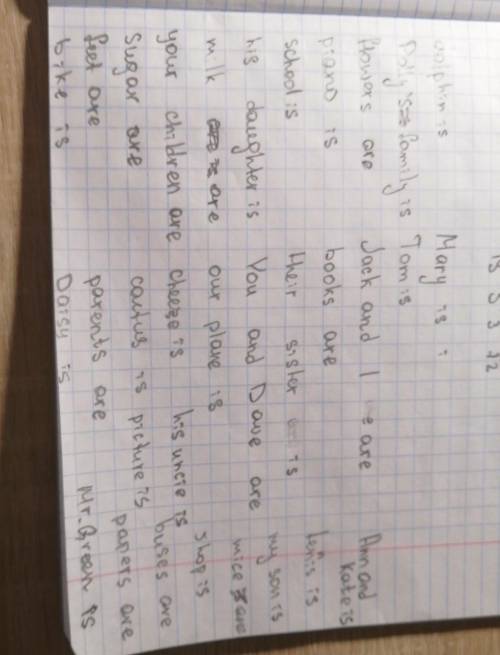 dolphin is Mary is
Dolly's family is Tom is
flowers are Jack and I are Ann and Kate is
piano is books are tenis is
school is their sister is my son is
his daughter is You and Dave are mice are
milk are our plane is shop is
your children are cheese is his uncle is buses are
sugar are cactus is picture is papers are
feet are parents are Mr. Green is
bike is Daisy is